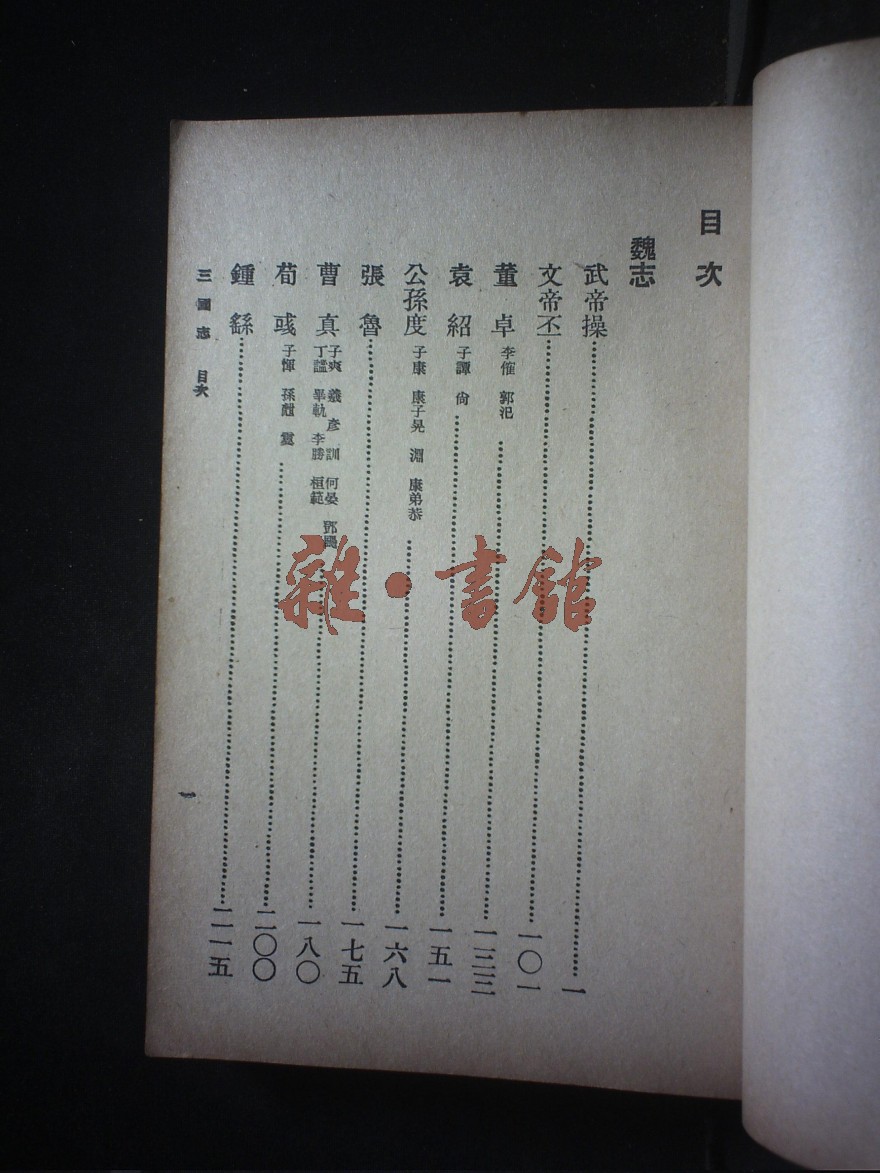 目次
魏志
武帝操……一
文帝丕……一〇一
董卓 李傕 郭汜……一三三
袁紹 子譚 尙……一五一
公孫度 子康 康子晃 淵 康弟恭……一六八
張魯……一七五
曹真 子爽 羲 彥 訓 何晏 鄧颺
丁謐 畢軌 李勝 桓範……一八〇
荀彧 子惲 孫……二〇〇
鍾繇……二一五
三國志 目次
一
雜·書館